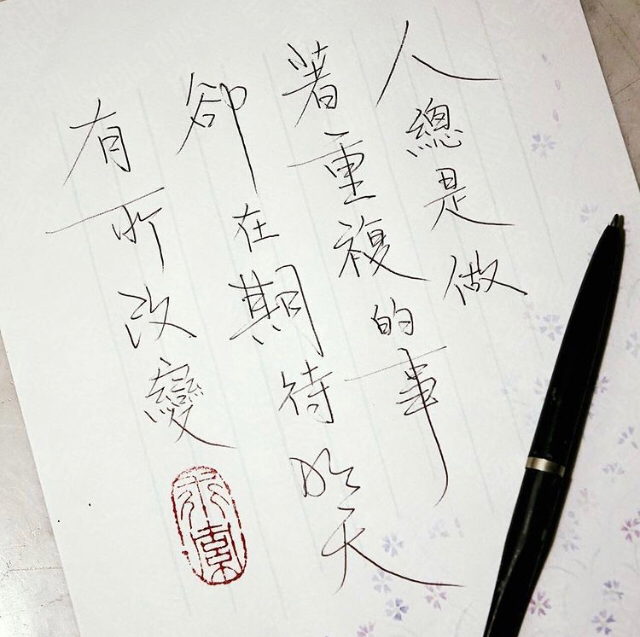 人總是做
著重複的事
卻在期待明天
有所改變